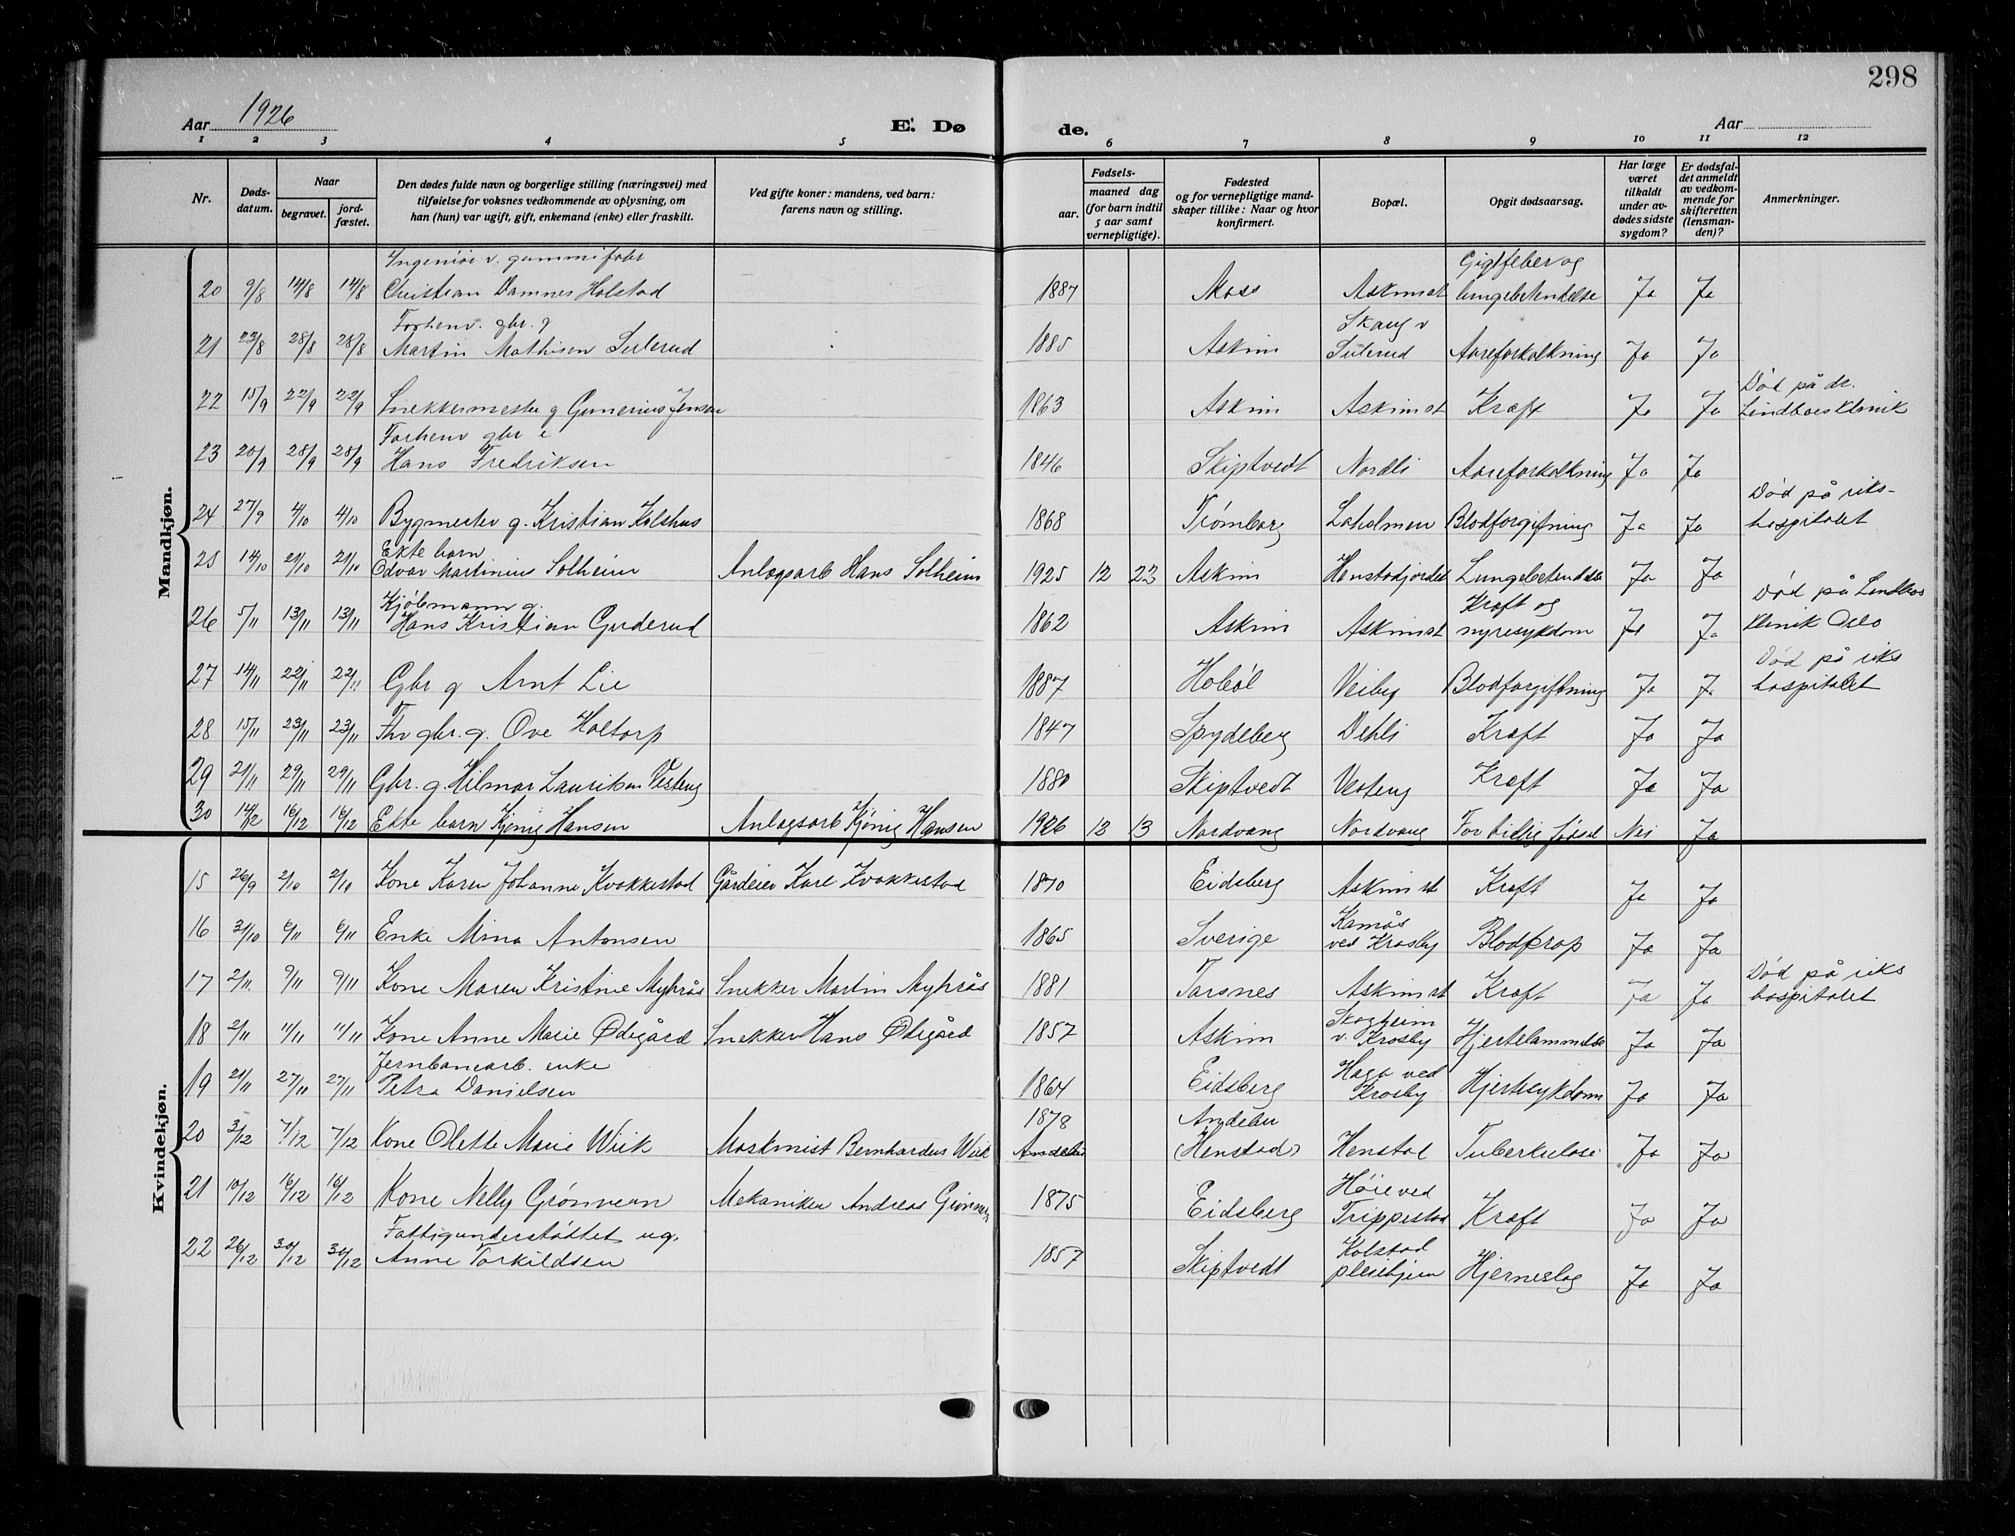 298
Aar 1926
E. Dø
de.
Aar
1 2 3 4 5 6 7 8 9 10 11 12
Nr.
Døds-
datum.
Naar
begravet.
jord-
fæstet.
Den dødes fulde navn og borgerlige stilling (næringsvei) med
tilføielse for voksnes vedkommende av oplysning, om
han (hun) var ugift, gift, enkemand (enke) eller fraskilt.
Ved gifte koner: mandens, ved barn:
farens navn og stilling.
Fødsels-
aar.
maaned dag
(for barn indtil
5 aar samt
vernepligtige).
Fødested
og for vernepligtige mand-
skaper tillike: Naar og hvor
konfirmert.
Bopæl.
Opgit dødsaarsag.
Har læge
været
tilkaldt
under av-
dødes sidste
sygdom?
Er dødsfal-
det anmeldt
av vedkom-
mende for
skifteretten
(lensman-
den)?
Anmerkninger.
Mandkjøn.
Ingeniør v. gummifabr Gigtfeber og
20 9/8 14/8 14/8 Christian Damnes Holstad 1887 Moss Askim st lungebetendelse Ja Ja
Forhenv. gbr. g Skaug v
21 23/8 28/8 28/8 Martin Mathisen Sulerud 1885 Askim Sulerud Aareforkalkning Ja Ja
Død på dr.
22 15/9 22/9 22/9 Snekkermester g Gunerius Jensen 1863 Askim Askim st Kræft Ja Ja Lindboes Klinik
Forhenv gbr e
23 20/9 28/9 28/9 Hans Fredriksen 1846 Skiptvedt Nordli Aareforkalkning Ja Ja
Død på riks-
24 27/9 4/10 4/10 Bygmester g. Kristian Kolshus 1868 Trømborg Laholmen Blodforgiftning Ja Ja hospitalet
Ekte barn
25 14/10 21/10 21/10 Odvar Martinius Solheim Anlægsarb Hans Solheim 1925 12 22 Askim Henstadjordet Lungebetendelse Ja Ja
Kjøbmann g. Kræft og Død på Lindboes
26 5/11 13/11 13/11 Hans Kristian Guderud 1862 Askim Askim st nyresykdom Ja Ja klinik Oslo
Død på riks
27 14/11 22/11 22/11 Gbr g Arnt Lie 1887 Hobøl Veiby Blodforgiftning Ja Ja hospitalet
28 15/11 23/11 23/11 Fhv gbr. g. Ove Holtorp 1847 Spydeberg Dehli Kræft Ja Ja
29 21/11 29/11 29/11 Gbr. g. Hilmar Lauritsen Vesteng 1880 Skiptvedt Vesteng Kræft Ja Ja
30 14/12 16/12 16/12 Ekte barn Kjønig Hansen Anlægsarb Kjønig Hansen 1926 12 13 Nordvang Nordvang For tidlig fødsel Nei Ja
Kvindekjøn.
15 26/9 2/10 2/10 Kone Karen Johanne Kvakkestad Gårdeier Karl Kvakkestad 1870 Eidsberg Askim st Kræft Ja Ja
Kamås
16 31/10 6/11 6/11 Enke Mina Antonsen 1865 Sverige ved Krosby Blodprop Ja Ja
Død på riks
17 2/11 9/11 9/11 Kone Maren Kristine Myhrås Snekker Martin Myhrås 1881 Tarsnes Askim st Kræft Ja Ja hospitalet
Skogheim
18 2/11 11/11 11/11 Kone Anne Marie Ødegård Snekker Hans Ødegård 1857 Askim v. Krosby Hjertelammelse Ja Ja
Jernbanearb. enke Haga ved
19 21/11 27/11 27/11 Petra Danielsen 1864 Eidsberg Krosby Hjertesykdom Ja Ja
1878 Andebu
20 3/12 7/12 7/12 Kone Olette Marie Wiik Maskinist Bernhardus Wiik Andebu (Henstad) Henstad Tuberkulose Ja Ja
Høie ved
21 10/12 16/12 16/12 Kone Nelly Grønvern Mekaniker Andreas Grønvern 1875 Eidsberg Trippestad Kræft Ja Ja
Fattigunderstøttet ug. Kolstad
22 26/12 30/12 30/12 Anne Torkildsen 1857 Skiptvedt pleiehjem Hjerneslag Ja Ja